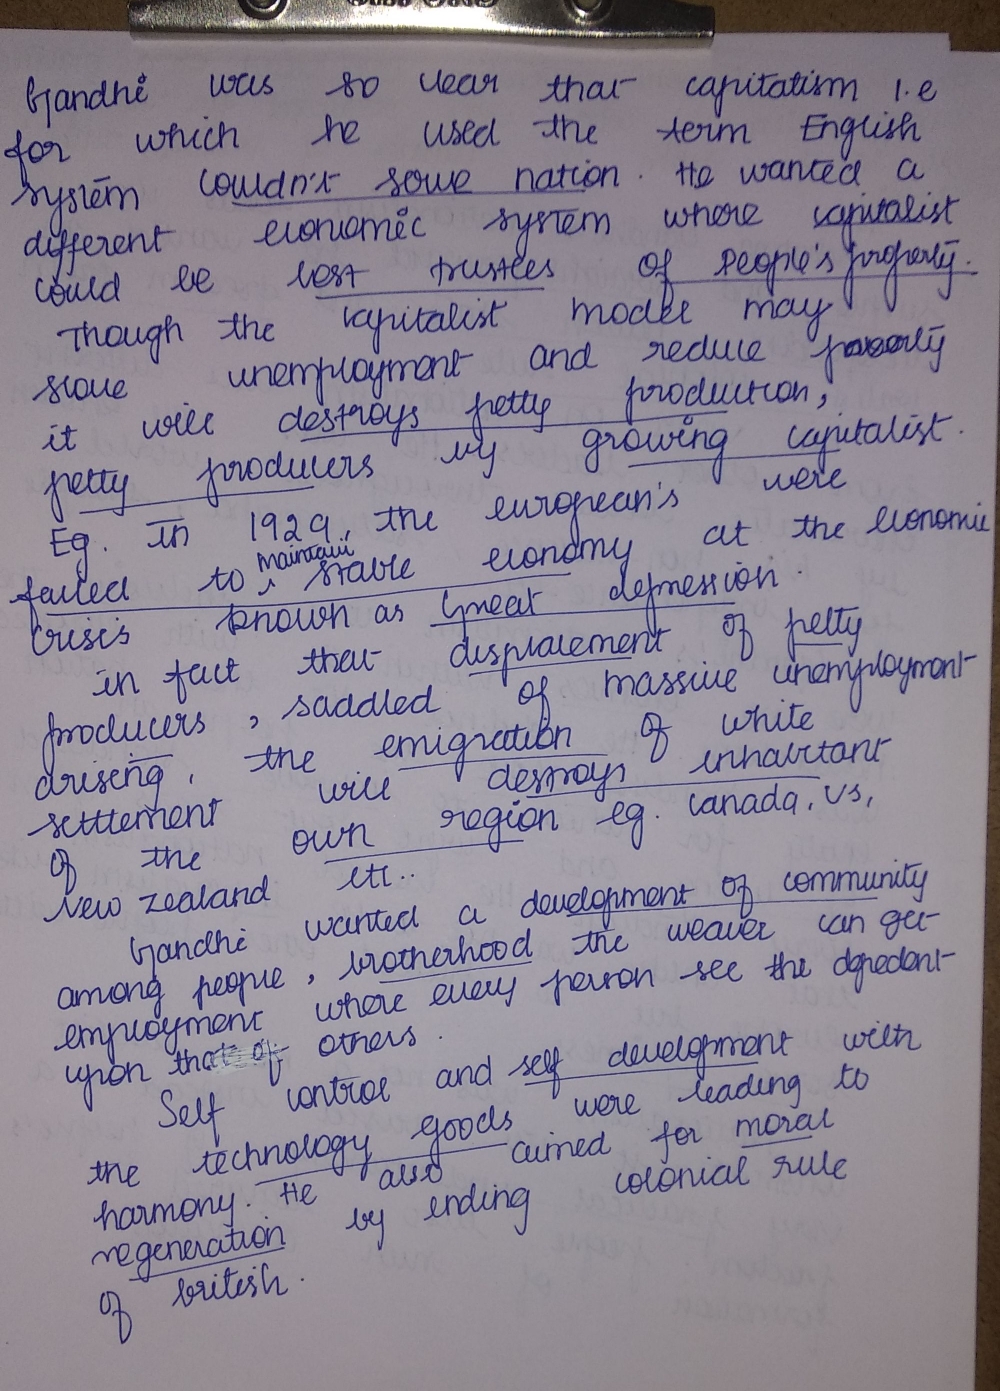 Gandhi was so clear that capitatism i.e
for which he used the term English
system couldn't solve nation. He wanted a
different economic system where capitalist
could be best trustees of people's property.
Though the capitalist model may
slove unemployment and reduce poverty
it will destroys petty production,
petty producers by growing capitalist.
Eg. In 1929. the european's were
failed to maintain stable economy at the economic
crisis known as Great depression.
in fact that displacement of petty
producers, saddled of massive unemployment
arising, the emigration of white
setttlement will destroys inhabitant
of the own region eg. Canada, US,
New Zealand etc..
Gandhi wanted a development of community
among people, brotherhood the weaver can get
employment where every person see the depedent
upon that of others.
Self control and self development with
the technology goods were leading to
harmony. He also aimed for moral
regeneration by ending colonial rule
of british.